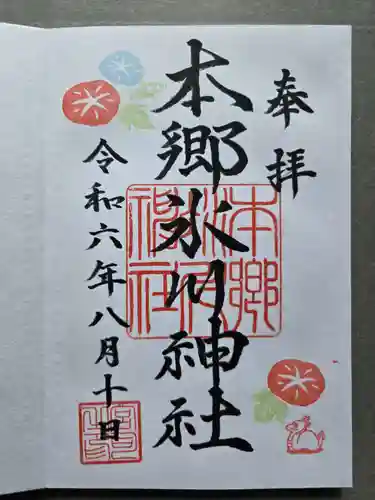 奉拝
本郷氷川神社
令和六年八月十日
本郷氷川神社